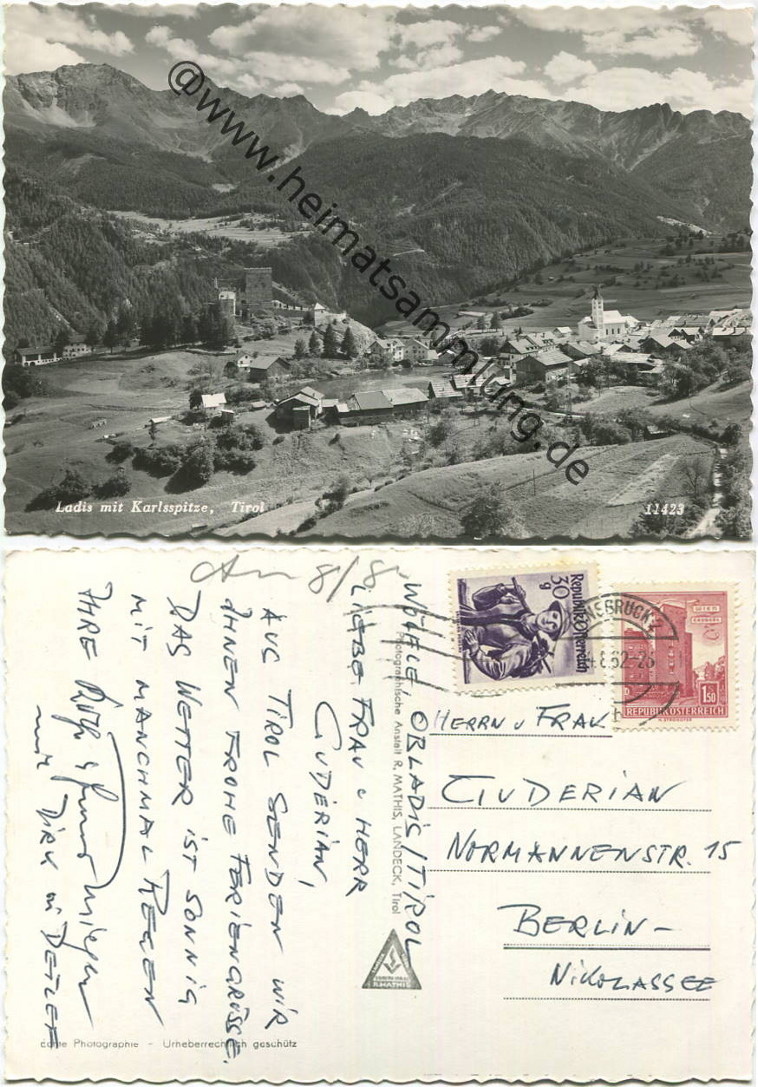 @www.heimatsammlung.de
Ladis mit Karlsspitze, Tirol
11423
An 8/8
WOHLE, OBLADIS/TIROL
LIEBE FRAU u HERR
GUDERIAN,
AUS TIROL SENDEN WIR
IHNEN FROHE FERIENGRÜSSE.
DAS WETTER IST SONNIG
MIT MANCHMAL REGEN
IHRE
mit DIRK u DETLEF
Photographische Anstalt R. MATHIS, LANDECK, Tirol
R.MATHIS
Echte Photographie - Urheberrechtlich geschützt
30 g
Republik Österreich
INNSBRUCK 2
WIEN
ERDBERG
1.50
REPUBLIK ÖSTERREICH
HERRN u FRAU
GUDERIAN
NORMANNENSTR. 15
BERLIN-
NIKOLASSEE